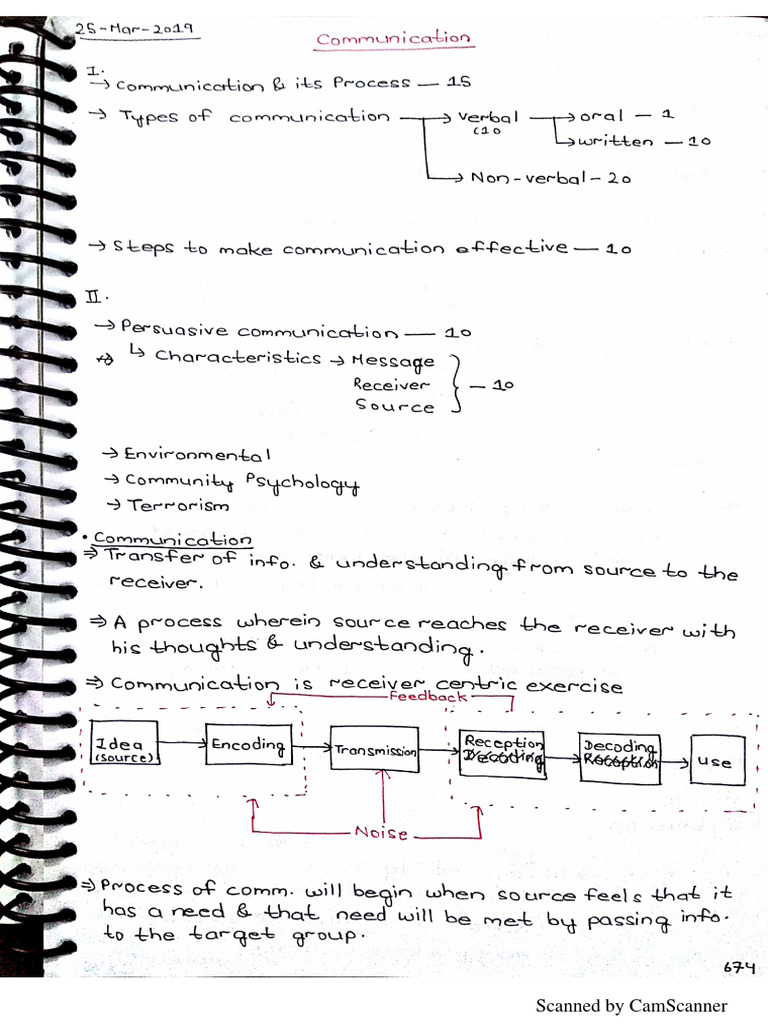 25-Mar-2019
Communication
I.
→ Communication & its Process — 15
→ Types of communication → verbal → oral — 1
(10
→ written — 10
→ Non-verbal - 20
→ Steps to make communication effective — 10
II.
→ Persuasive communication — 10
↳ Characteristics → Message
Receiver } — 10
Source
→ Environmental
→ Community Psychology
→ Terrorism
• Communication
⇒ Transfer of info. & understanding from source to the
receiver.
⇒ A process wherein source reaches the receiver with
his thoughts & understanding.
⇒ Communication is receiver centric exercise
Feedback
Idea
(source)
Encoding
Transmission
Reception
Decoding
Decoding
Reception
Use
Noise
⇒ Process of comm. will begin when source feels that it
has a need & that need will be met by passing info.
to the target group.
674
Scanned by CamScanner